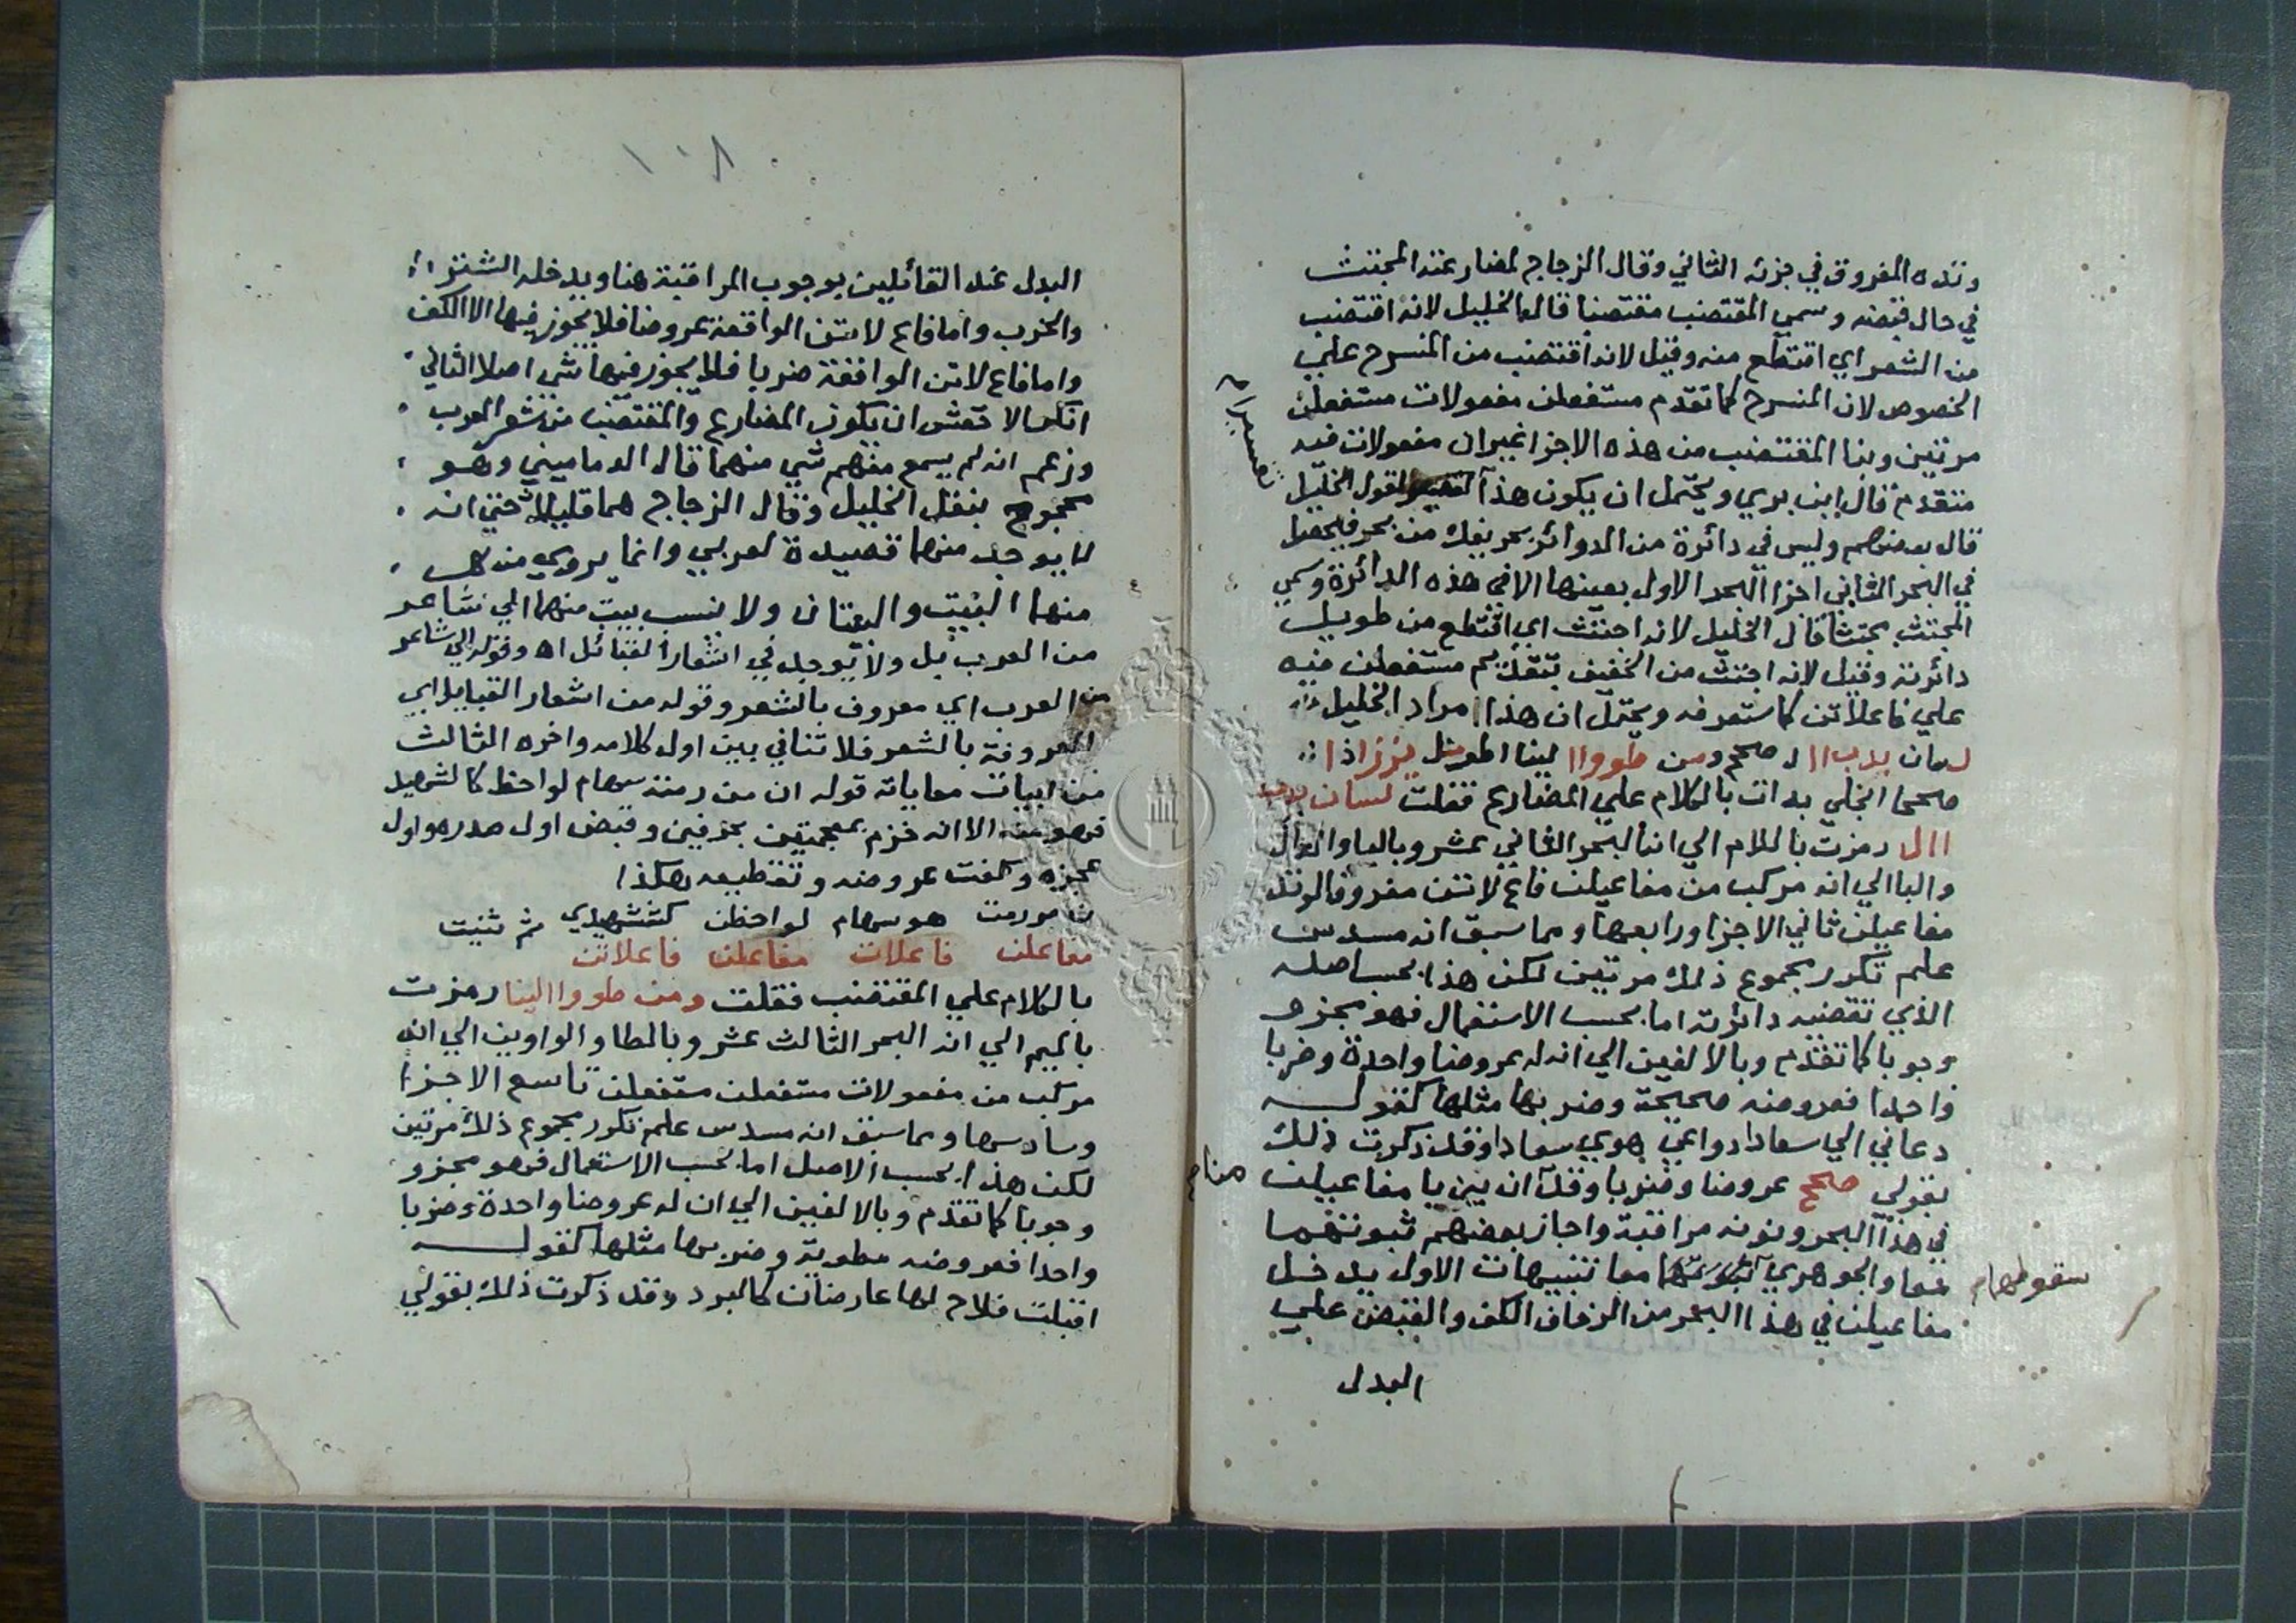 وتده المفروق في جزئه الثاني وقال الزجاج لمضارعته المجتث
في حال قبضه وسمي المقتضب مقتضبا قال الخليل لانه اقتضب
من الشعر اي اقتطع منه وقيل لانه اقتضب من المنسرح علي
الخصوص لان المنسرح كما تقدم مستفعلن مفعولات مستفعلن
مرتين وبنا المقتضب من هذه الاجزا غير ان مفعولات فيه
متقدم قال ابن بري ويحتمل ان يكون هذا تفسيرا لقول الخليل
قال بعضهم وليس في دائرة من الدوائر بحر يفك من بحر فيحصل
في البحر الثاني اجزا البحر الاول بعينها الا في هذه الدائرة وسمي
المجتث مجتثا قال الخليل لانه اجتث اي اقتطع من طويل
دائرته وقيل لانه اجتث من الخفيف بتقديم مستفعلن فيه
علي فاعلاتن كما ستعرفه ويحتمل ان هذا مراد الخليل
لسان بدب اال صحح ومن طووا الينا اطو
صححا انجلي بدات بالكلام علي المضارع فقلت لسان بدب
اال رمزت باللام الي انه البحر الثاني عشر وبالبا والدال
والبا الي انه مركب من مفاعيلن فاع لاتن مفروق الوتد
مفاعيلن ثاني الاجزا ورابعها ومما سبق انه مسدس
علم تكرر مجموع ذلك مرتين لكن هذا بحسب اصله
الذي تقتضيه دائرته اما بحسب الاستعمال فهو مجزو
وجوبا كما تقدم وبالالفين الي ان له عروضا واحدة وضربا
واحدا فعروضه صحيحة وضربها مثلها كقوله
دعاني الي سعادا دواعي هوي سعادا وقد ذكرت ذلك
بقولي صحح عروضا وضربا وقدآن بين يا مفاعيلن
في هذا البحر ونونه مراقبة واجاز بعضهم ثبوتهما
معا والجوهري سقوطهما معا تنبيهات الاول يدخل
مفاعيلن في هذا البحر من الزحاف الكف والقبض علي
البدل
سقوطهما م
١٠٨
البدل عند القائلين بوجوب المراقبة هنا ويدخله الشتر
والخرب واما فاع لاتن الواقعة عروضا فلا يجوز فيها الا الكف
واما فاع لاتن الواقعة ضربا فلا يجوز فيها شي اصلا الثاني
انكر الاخفش ان يكون المضارع والمقتضب من شعر العرب
وزعم انه لم يسمع منهم شي منهما قال الدماميني وهو
محجوج بنقل الخليل وقال الزجاج هما قليلان حتي انه
لا يوجد منهما قصيدة لعربي وانما يروي من كل
منهما البيت والبيتان ولا ينسب بيت منهما الي شاعر
من العرب بل ولا يوجد في اشعار القبائل اه وقوله الي شاعر
من العرب اي معروف بالشعر وقوله من اشعار القبايل اي
المعروفة بالشعر فلا تنافي بين اول كلامه واخره الثالث
من ابيات معاياته قوله ان من رمته سهام لواحظ كالشهيد
فهو منه الا انه خزم بمعجمتين بحرفين وقبض اول صدره واول
عجزه وكفت عروضه وتقطيعه هكذا
من مورمت هوسهام لواحظن كششهيدي ثم ثنيت
مفاعلن فاعلات مفاعلن فاعلاتن
بالكلام علي المقتضب فقلت ومن طووا الينا رمزت
بالميم الي انه البحر الثالث عشر وبالطا والواوين الي انه
مركب من مفعولات مستفعلن مستفعلن تاسع الاجزا
وسادسها ومما سبق انه مسدس علم تكرر مجموع ذلك مرتين
لكن هذا بحسب الاصل اما بحسب الاستعمال فهو مجزو
وجوبا كما تقدم وبالالفين الي ان له عروضا واحدة وضربا
واحدا فعروضه مطوية وضربها مثلها كقوله
اقبلت فلاح لها عارضان كالبرد وقد ذكرت ذلك بقولي